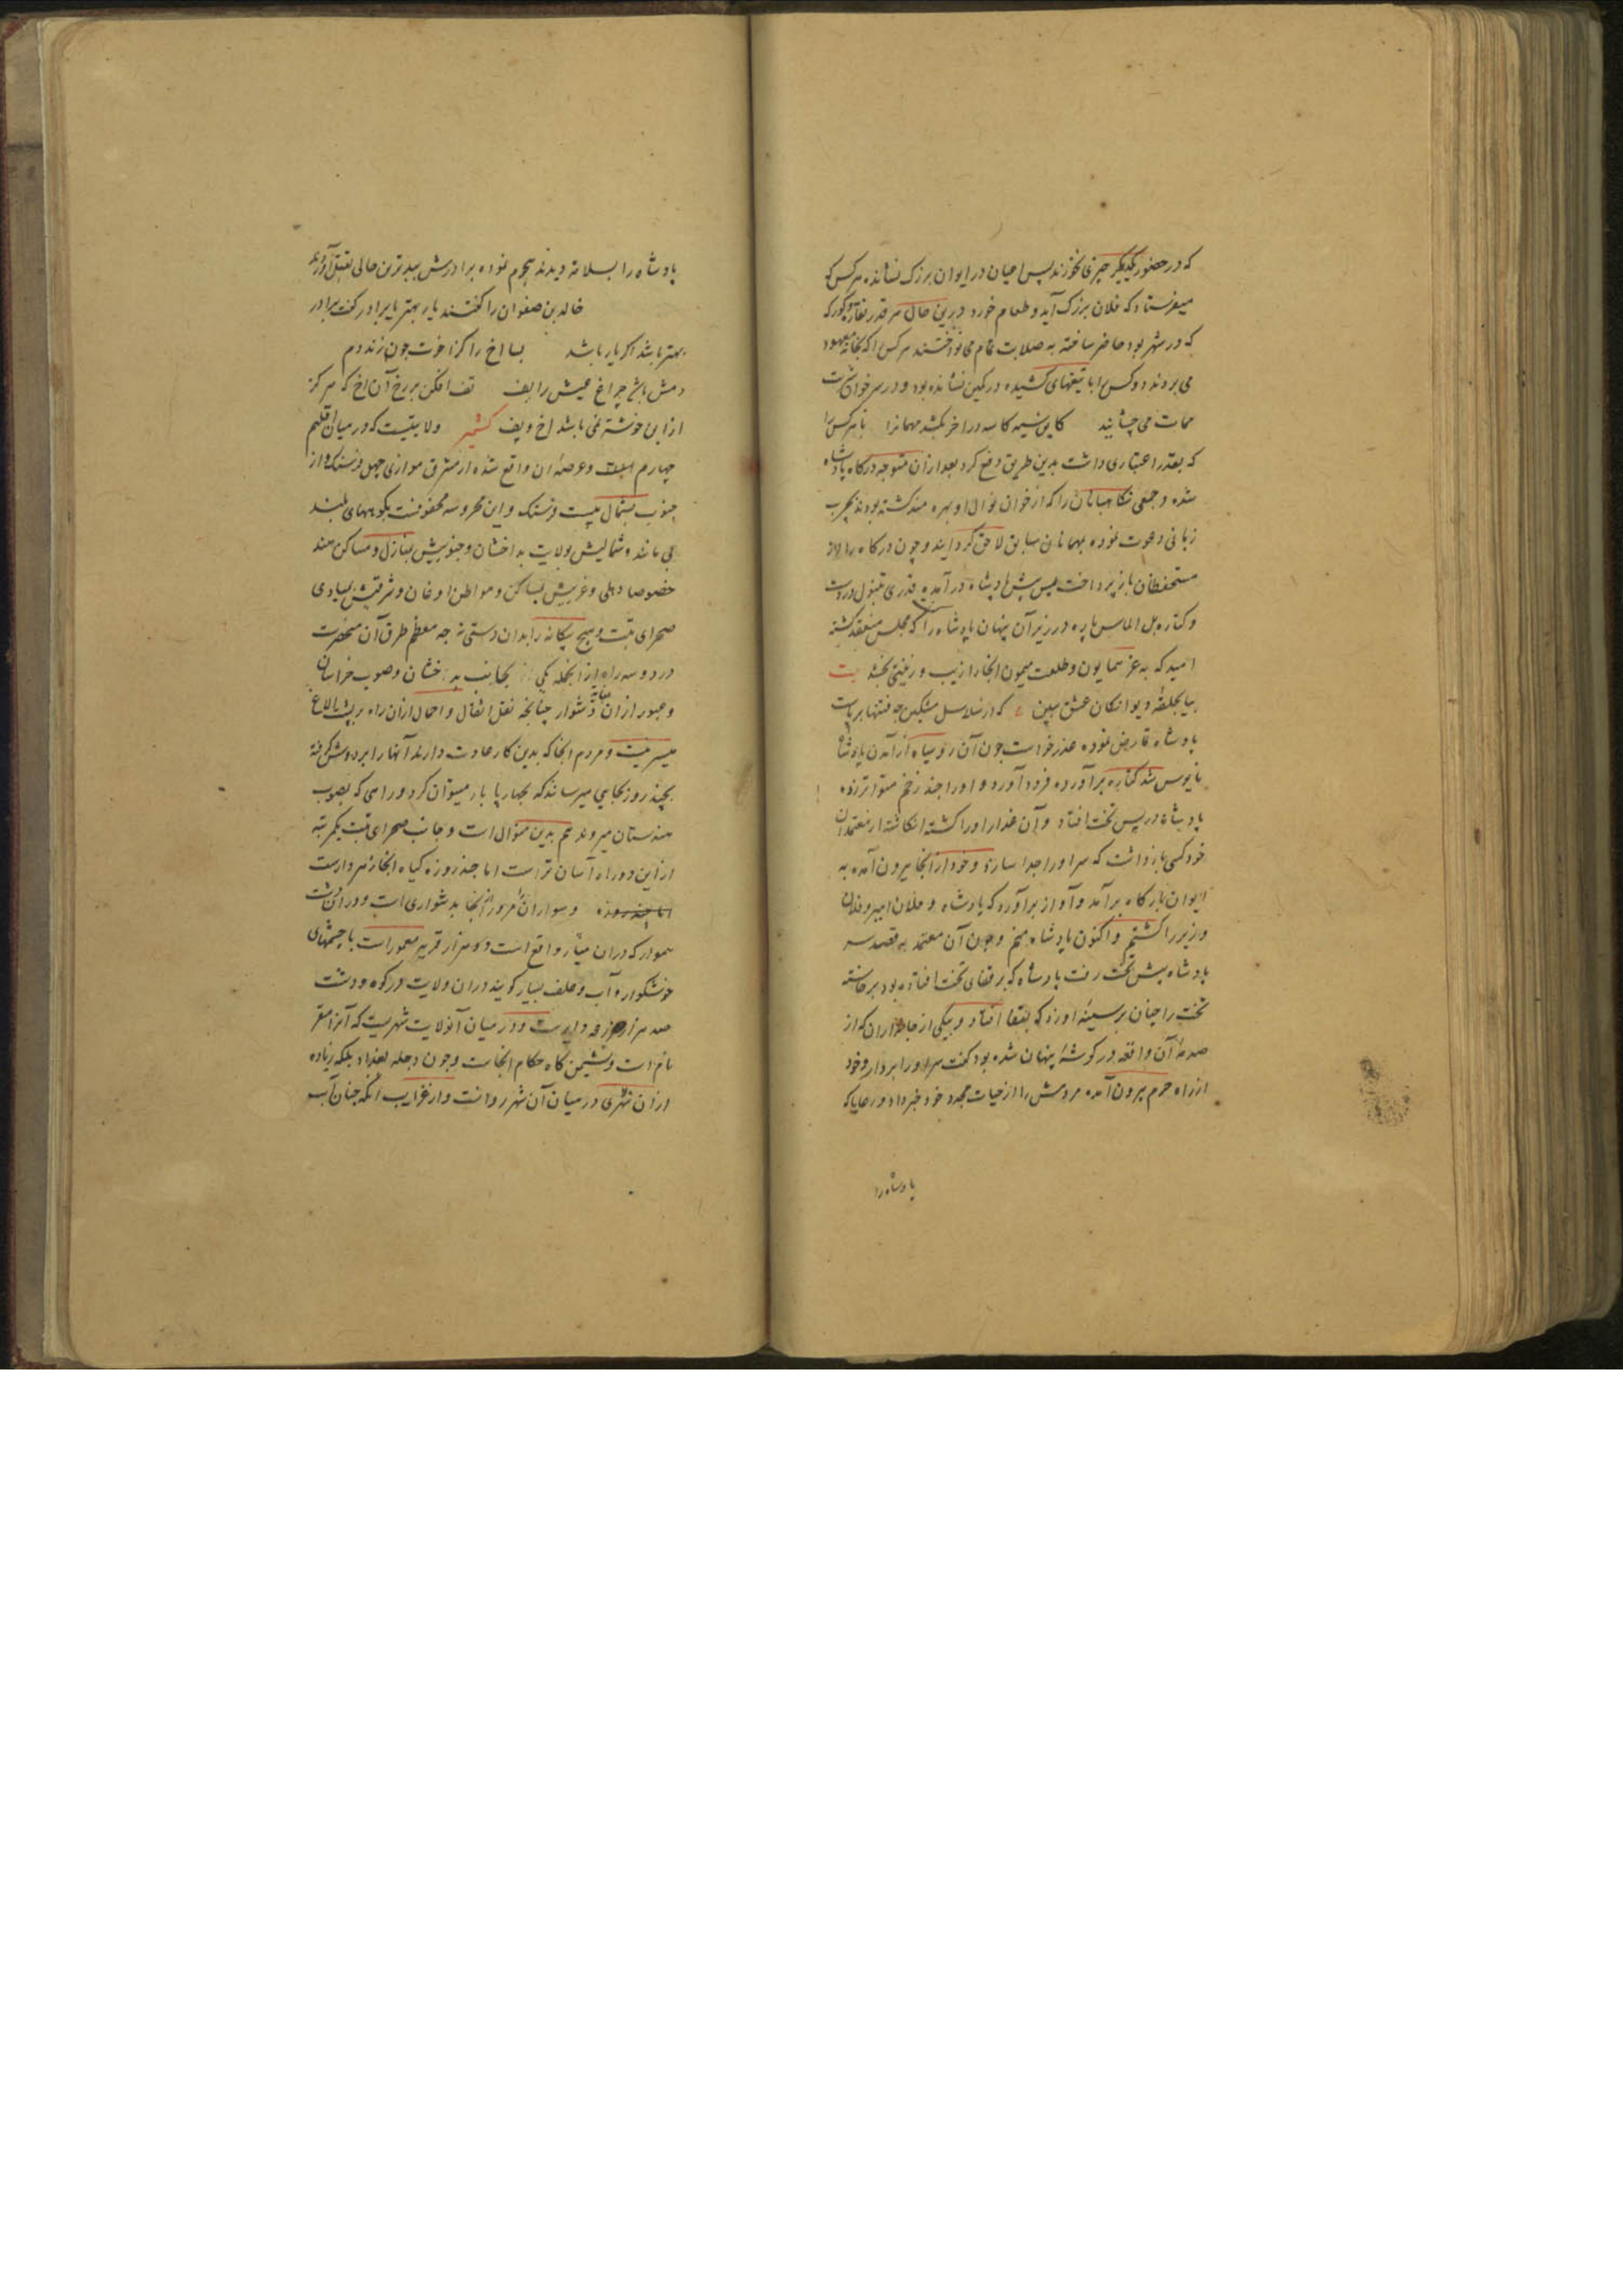 که در حضور یکدیگر چیزی نخورند پس اعیان در ایوان بزرک نشانده هر کس که
میفرستاد که فلان بزرک آید و طعام خورد درین حال هر قدر نقاره و کورکه
که در شهر بود حاضر ساخته به صلابت تمام می نواختند هر کس را که بخانه معهود
می بردند دو کس را با تیغهای کشیده در کمین نشانده بود و در سر خوان
ممات می چشانید کاین سیه کاسه در آخر بکشد مهمانرا تا هر کس را
که بقدر اعتباری داشت بدین طریق دفع کرد بعد ازان متوجه درکاه پادشاه
شده و جمعی نکاهبانان را که از خوان نوال او بهره مند کشته بودند بچرب
زبانی دعوت نموده بمهمانان سابق لاحق کردانید و چون درکاه را از
مستحفظان باز پرداخت پس پیش پادشاه در آمده قدری تنبول در دست
و کتاره مل الماس پاره در زیر آن پنهان پادشاه را که مجلس منعقد کشته
امید که به عز همایون و طلعت میمون انجا را زیب و زینتی بخشد بیت
بیا بحلقه دیوانکان عشق ببین که از سلاسل مشکین چه فتنها برپاست
پادشاه تمارض نموده عذر خواست چون آن روسیاه از آمدن پادشاه
مایوس شد کتاره برآورده فرود آورد و او را چند زخم متواتر زده
پادشاه در پس تخت افتاد و آن غدار او را کشته انکاشته از معتمدان
خود کسی بازداشت که سر او را جدا سازد و خود از انجا بیرون آمده به
ایوان بارکاه برآمد و آواز برآورد که پادشاه و فلان امیر و فلان
وزیر را کشتم و اکنون پادشاه منم و چون آن معتمد به قصد سر
پادشاه پیش تخت رفت پادشاه که بر قفای تخت افتاده بود برخاسته
تخت را چنان بر سینه او زد که بقفا افتاد و بیکی از جانداران که از
صدمه آن واقعه در کوشه پنهان شده بود کفت سر او را بردار و خود
از راه حرم بیرون آمده مردمش را از حیات مجدد خود خبر داد و رعایا که
پادشاه را
پادشاه را بسلامت دیدند هجوم نموده برادرش ببدترین حالی بقتل آوردند
خالد بن صفوان را کفتند یار بهتر یا برادر کفت برادر
بهتر باشد اکر یار باشد بسا اخ را کز اخوت چون زند دم
دمش باشد چراغ عیش را پف تف افکن بر رخ آن اخ که هرکز
ازین خوشتر نمی باشد اخ و پف کشمیر ولایتیست که در میان اقلیم
چهارم است وعرصه ان واقع شده از مشرق موازی چهل فرسنک و از
جنوب بشمال بیست فرسنک و این محروسه محفوفست بکوههای بلند
می ماند و شمالیش بولایت بدخشان و جنوبیش بمنازل و مساکن هند
خصوصا دهلی و غربیش بمساکن و مواطن اوغان و شرقیش بمبادی
صحرای تبت و هیچ بیکانه را بدان دستی نه چه معظم طرق آن منحصرست
در دو سه راه از انجمله یکی بجانب بدخشان و صوب خراسان
و عبور از ان بغایت دشوار چنانچه نقل اثقال و احمال ازان راه بر پشت الاغ
میسر نیست و مردم انجا که بدین کار عادت دارند آنها را بر دوش کرفته
بچند روز بجایی میرسانند که بچهارپا بار میتوان کرد و راهی که بصوب
هندستان میروند هم بدین منوال است و جانب صحرای تبت یکمرتبه
از این دو راه آسان تر است اما چند روزه کیاه انجا زهردارست
اما چند روزه و سواران را مرور از انجا بدشواری است و دران دشت
هموار که دران میان واقع است ده هزار قریه معمور است با چشمهای
خوشکوار و آب و علف بسیار کویند دران ولایت در کوه و دشت
صد هزار مزرعه دایرست و در میان آنولایت شهریست که آنرا نغز
نام است و نشیمن کاه حکام انجاست و چون دجله بغداد بلکه زیاده
ازان نهری در میان آن شهر روانست و از غرایب آنکه چنان آب